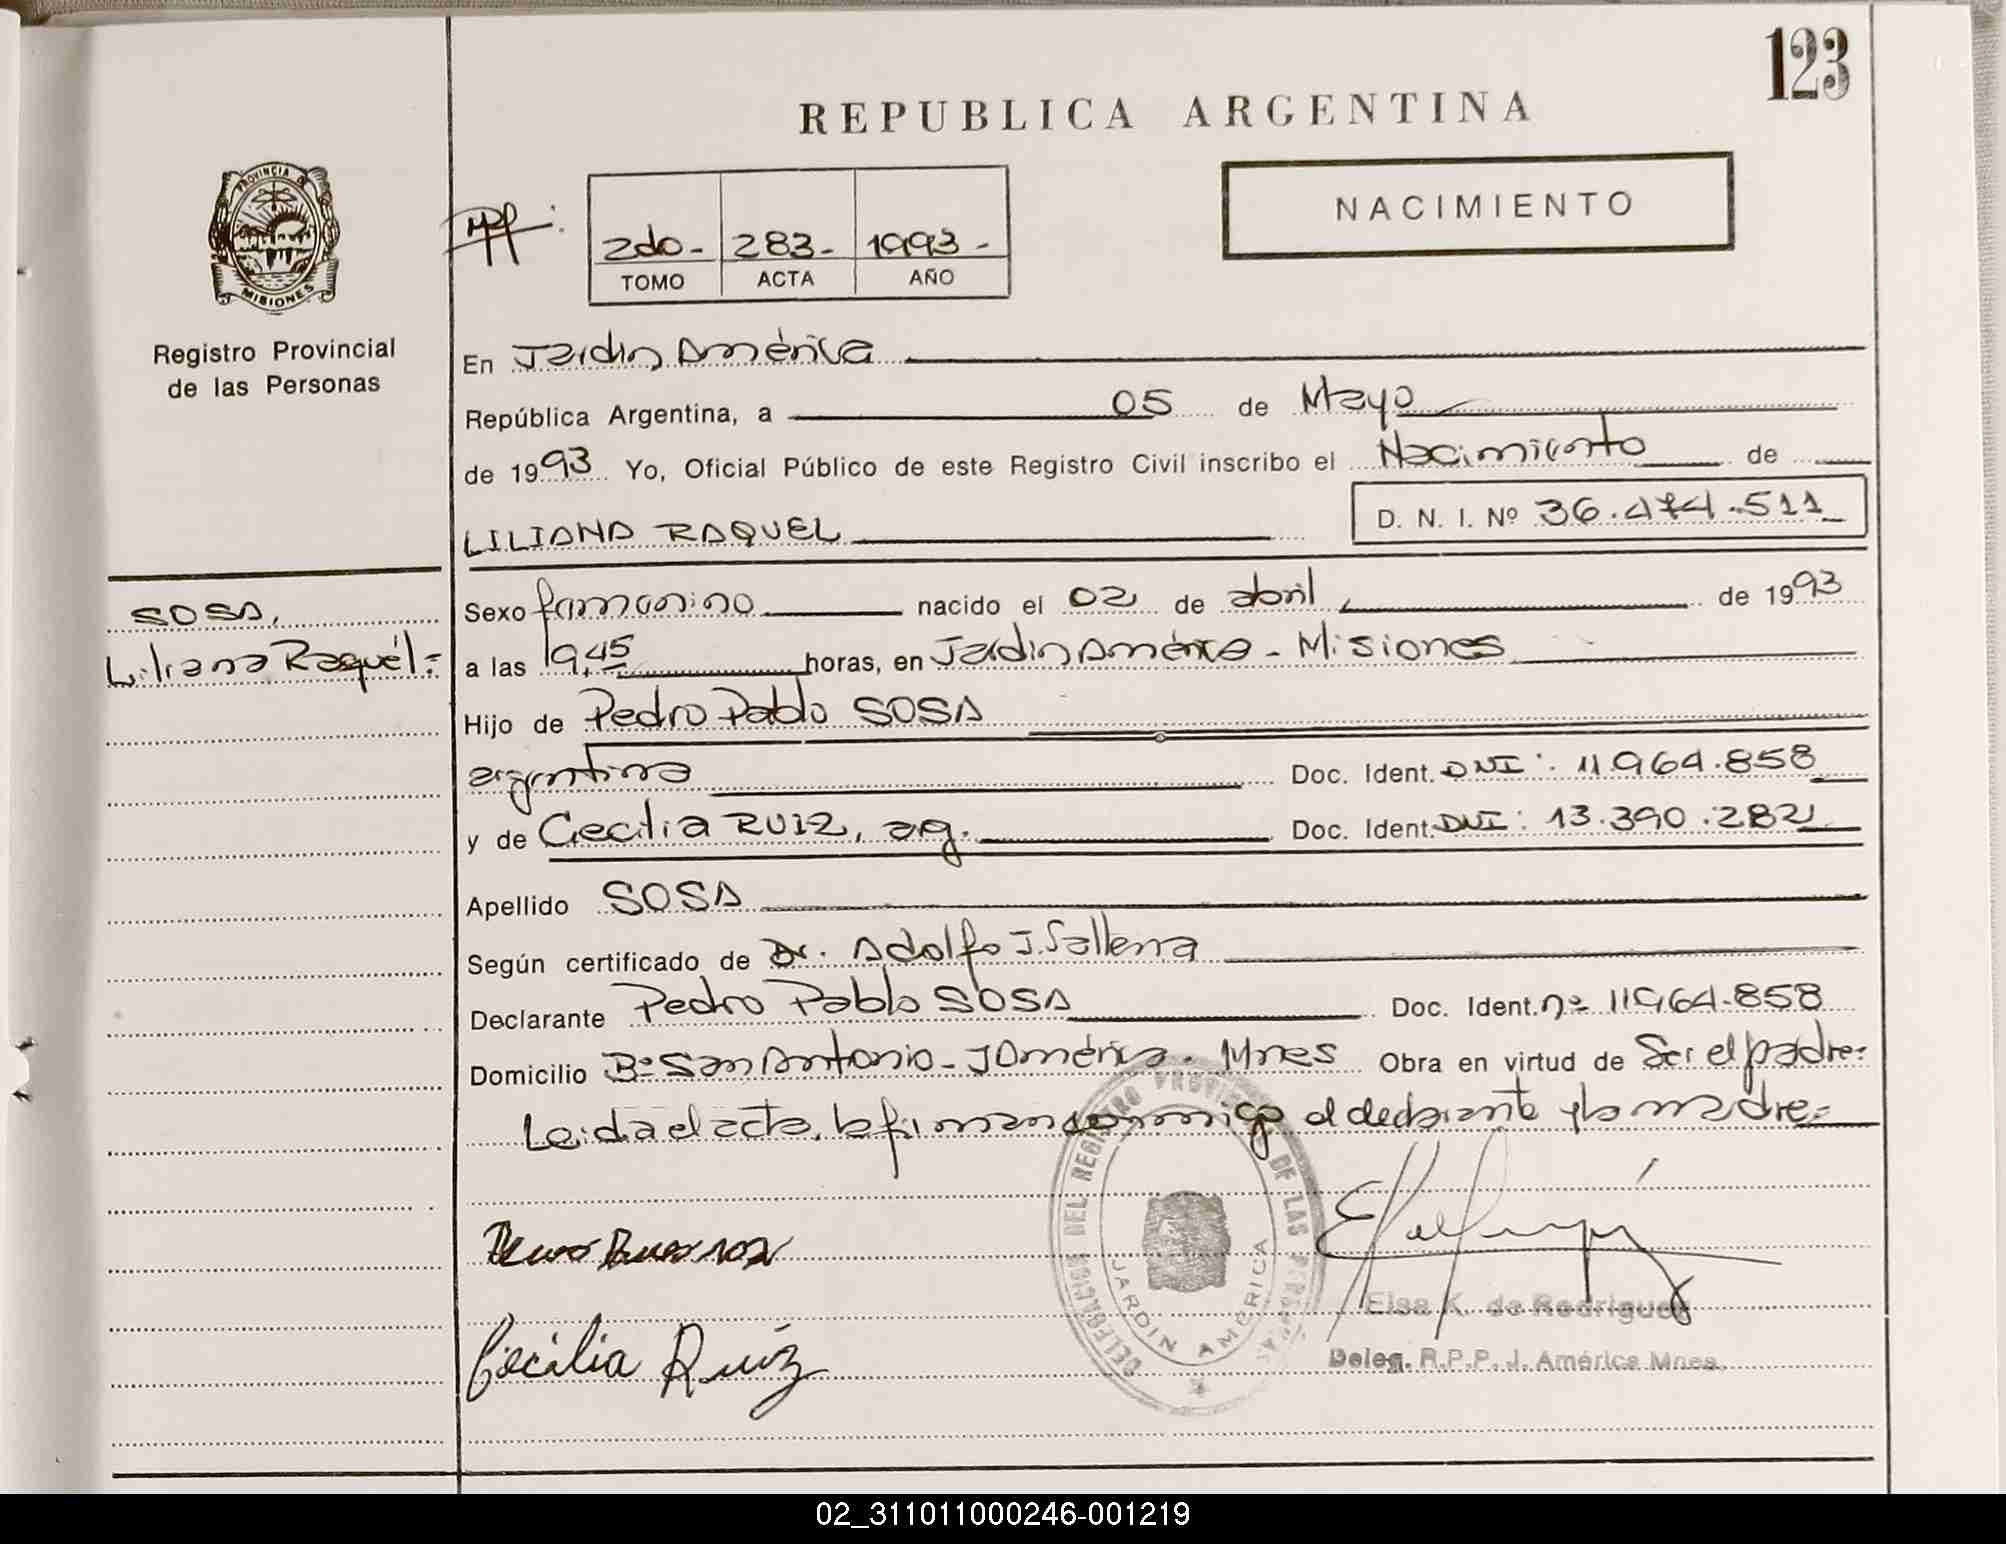 123
REPUBLICA ARGENTINA
PROVINCIA D
MISIONES
NACIMIENTO
2do- 283- 1993-
TOMO ACTA AÑO
Registro Provincial
de las Personas
En Jardin América
República Argentina, a 05 de Mayo
de 1993 Yo, Oficial Público de este Registro Civil inscribo el Nacimiento de
LILIANA RAQUEL D. N. I. Nº 36.474.511
SOSA,
Liliana Raquél=
Sexo femenino nacido el 02 de abril de 1993
a las 19,45 horas, en Jardin América - Misiones
Hijo de Pedro Pablo SOSA
argentina Doc. Ident. DNI: 11.964.858
y de Cecilia RUIZ, arg. Doc. Ident. DNI: 13.390.282
Apellido SOSA
Según certificado de Dr. Adolfo J. Sallema
Declarante Pedro Pablo SOSA Doc. Ident. nº 11964.858
Domicilio Bº San Antonio - J América - Mnes Obra en virtud de Ser el padre=
Leida el acta, la firman conmigo el declarante y la madre=
DELEGACION DEL REGISTRO PROVINCIAL DE LAS PERSONAS
JARDIN AMERICA
Elsa K. de Rodriguez
Cecilia Ruiz
Deleg. R.P.P. J. América Mnes.
02_311011000246-001219